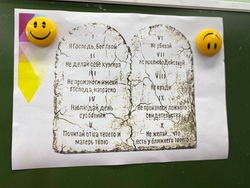 I
Я Господь, Бог твой
II
Не делай себе кумира
III
Не произноси имени
Господа напрасно
IV
Наблюдай день
субботний
V
Почитай отца твоего и
матерь твою
VI
Не убивай
VII
Не прелюбодействуй
VIII
Не кради
IX
Не произноси ложного
свидетельства
X
Не желай... что
есть у ближнего твоего